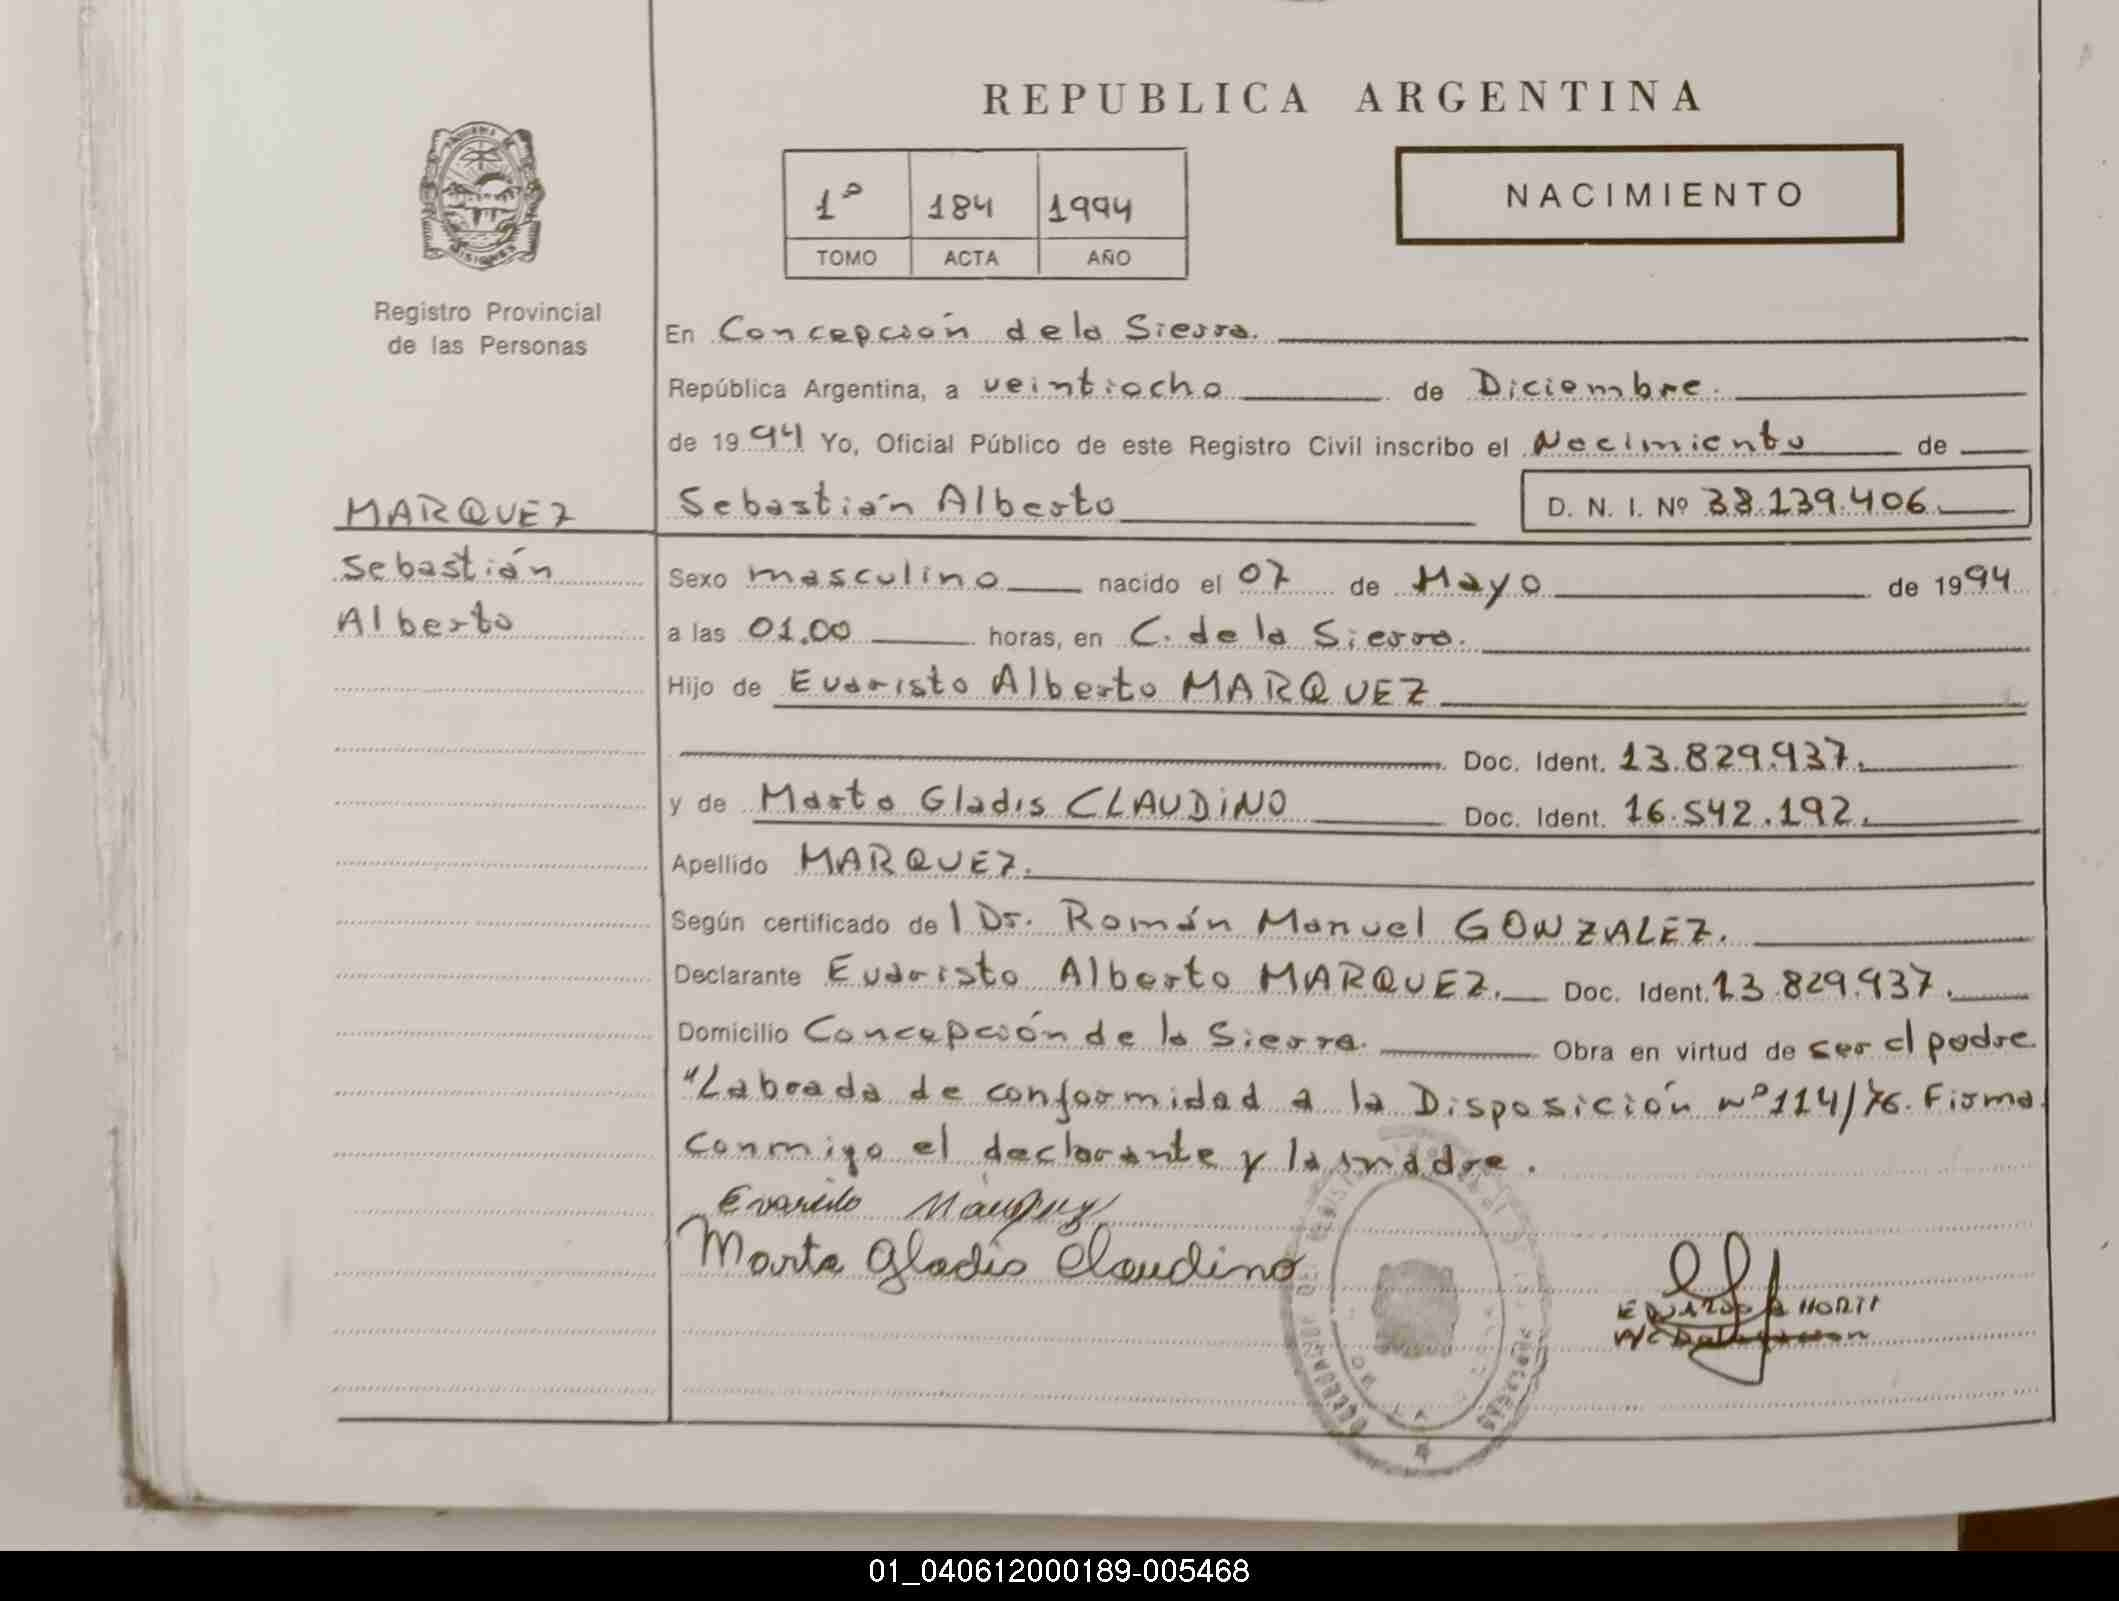 REPUBLICA ARGENTINA
1º 184 1994
TOMO ACTA AÑO
NACIMIENTO
MISIONES
Registro Provincial
de las Personas
En Concepción de la Sierra.
República Argentina, a veintiocho de Diciembre.
de 1994 Yo, Oficial Público de este Registro Civil inscribo el Nacimiento de
MARQUEZ
Sebastián Alberto D. N. I. Nº 38.139.406.
Sebastián
Alberto
Sexo masculino nacido el 07 de Mayo de 1994
a las 01.00 horas, en C. de la Sierra.
Hijo de Evaristo Alberto MARQUEZ
Doc. Ident. 13.829.937.
y de Marta Gladis CLAUDINO Doc. Ident. 16.542.192.
Apellido MARQUEZ.
Según certificado del Dr. Román Manuel GONZALEZ.
Declarante Evaristo Alberto MARQUEZ. Doc. Ident. 13.829.937.
Domicilio Concepción de la Sierra. Obra en virtud de ser el padre
"Labrada de conformidad a la Disposición nº 114/76. Firma
conmigo el declarante y la madre.
Evaristo Marquez
Marta Gladis Claudino
01_040612000189-005468